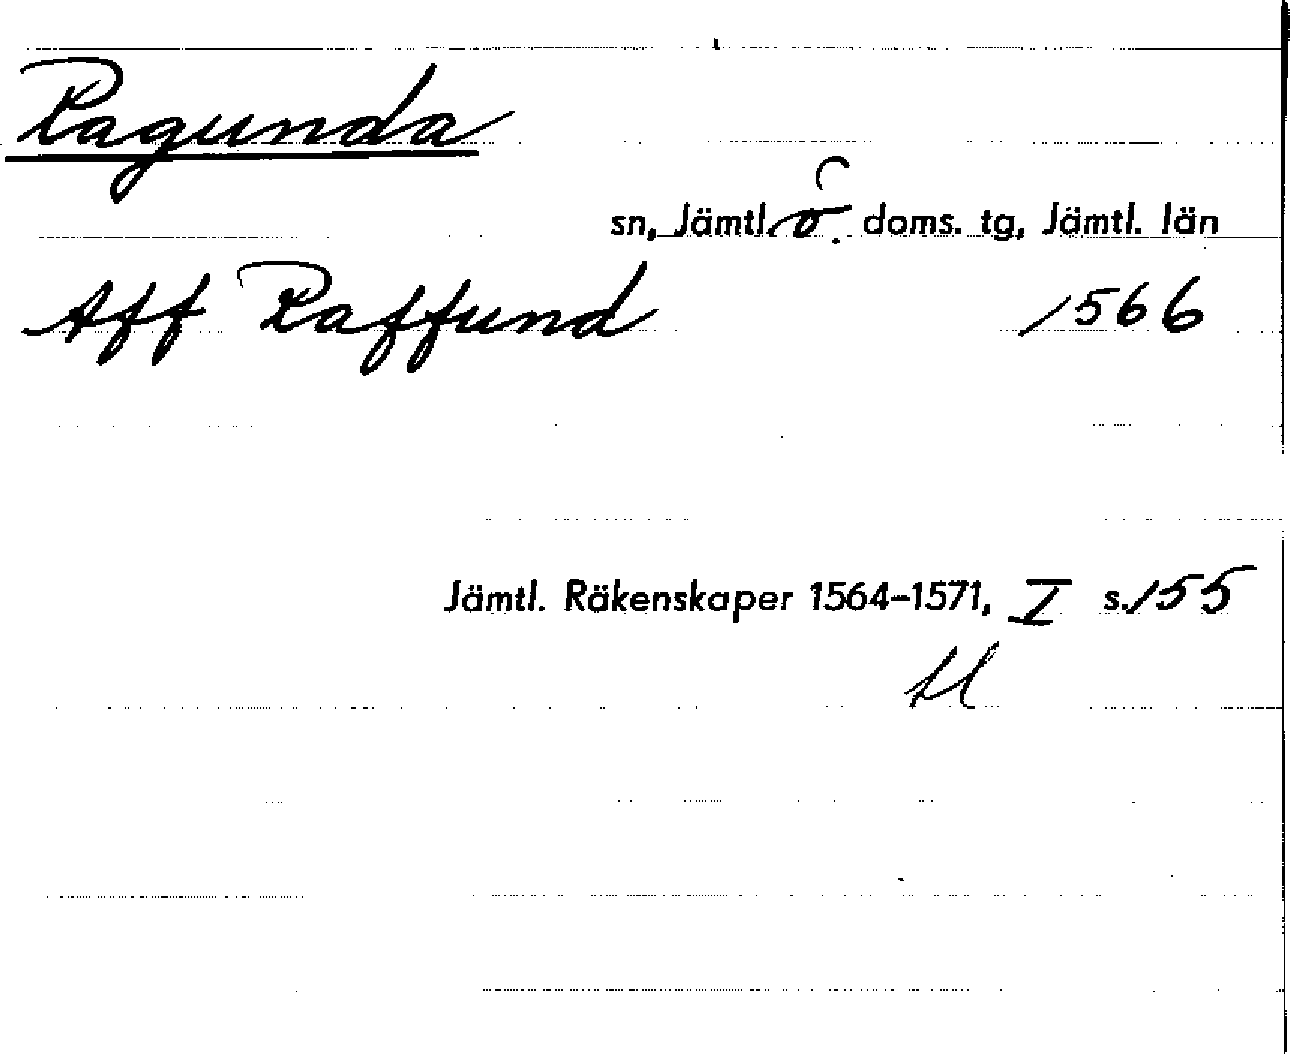 Ragunda
sn, Jämtl. ö. doms. tg, Jämtl. län
Aff Raffund 1566
Jämtl. Räkenskaper 1564-1571, I s. 155